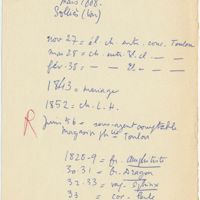 mars 1808.
Solliès (Var)
nov 27 = él. ch. entr. conc. Toulon
mai 28 = ch. entr. 2e cl. — —
fév. 38 = — — 1e — — —
1843 = mariage
1852 = ch. L. H.
R
Juin 56 = sous-agent comptable
Magasin Toulon
1828-9 = fr. Amphitrite
30.31 = br. Dragon
32.33 = Sphinx
33 = cor. Perle